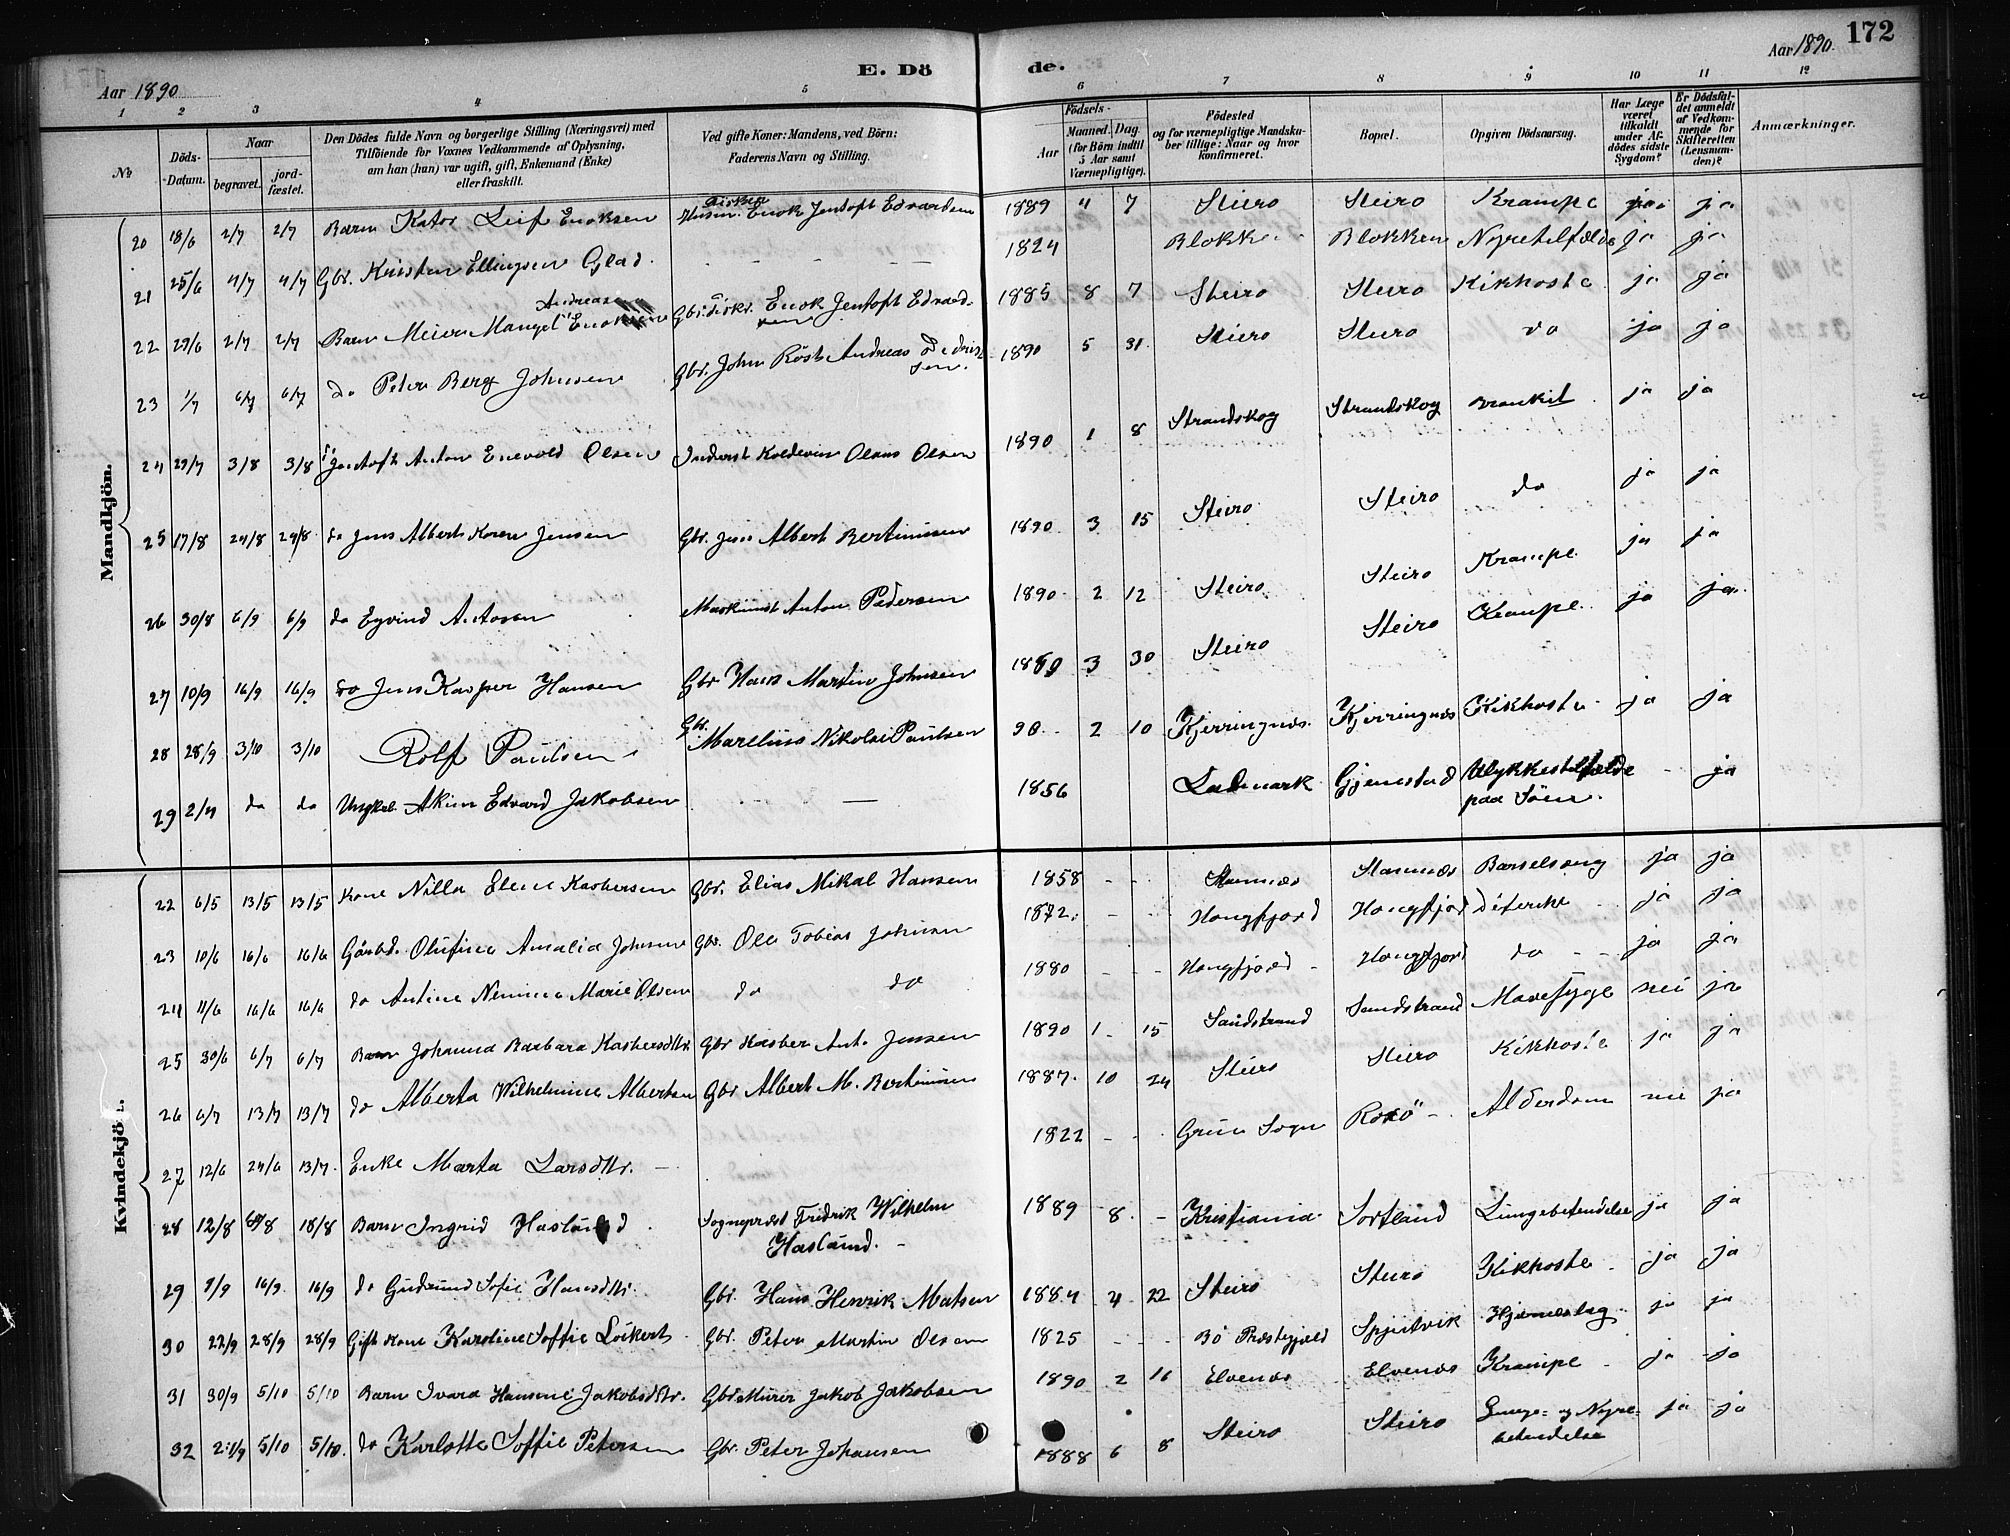 Aar 1890. E. Dö de. Aar 1890. 172
1 2 3 4 5 6 7 8 9 10 11 12
No
Döds-Datum.
Naar begravet. jordfæstet.
Den Dödes fulde Navn og borgerlige Stilling (Næringsvei) med Tilföiende for Voxnes Vedkommende af Oplysning, om han (hun) var ugift, gift, Enkemand (Enke) eller fraskilt.
Ved gifte Koner: Mandens, ved Börn: Faderens Navn og Stilling.
Födsels-
Aar Maaned. Dag (for Börn indtil 5 Aar samt Værnepligtige).
Födested og for værnepligtige Mandskaber tillige: Naar og hvor konfirmeret.
Bopæl.
Opgiven Dödsaarsag.
Har Læge været tilkaldt under Afdödes sidste Sygdom?
Er Dödsfaldet anmeldt af Vedkommende for Skifteretten (Lensmanden)?
Anmærkninger.
Mandkjön.
20 18/6 2/7 2/7 Barn Kator Leif Enoksen Enok Jentoft Edvardsen 1889 4 7 Steiro Steiro Krampe ja ja
21 25/6 4/7 4/7 Gbr. Kristen Ellingsen Glad. - - - 1824 Blokken Blokken Nyretilfælde ja ja
22 29/6 2/7 2/7 Barn Meier Mangel Andreas Enoksen Gbr. Enok Jentoft Edvardsen 1885 8 7 Steiro Steiro Kikhoste ja ja
23 1/7 6/7 6/7 do Peter Berg Johnsen Gbr. John Röst Andreas Pedersen. 1890 5 31 Steiro Steiro do ja ja
24 29/7 3/8 3/8 Jentoft Anton Enevold Olsen Inderst Koldevin Olaus Olsen 1890 1 8 Strandskog Strandskog Bronkit ja ja
25 17/8 24/8 24/8 do Jens Albert Koren Jensen Gbr. Jens Albert Bertinussen 1890 3 15 Steiro Steiro do ja ja
26 30/8 6/9 6/9 do Eyvind Antonsen Maskinist Anton Pedersen 1890 2 12 Steiro Steiro Krampe ja ja
27 10/9 16/9 16/9 do Jens Kasper Hansen Gbr Hans Martin Johnsen 1889 3 30 Steiro Steiro Krampe. ja ja
28 28/9 3/10 3/10 Rolf Paulsen Gbr. Marelius Nikolai Paulsen 90 2 10 Kjerringnes Kjerringnes Kikhoste ja ja
29 2/4 do do Ungkal. Akim Edvard Jakobsen - - 1856 Ladmark Gjenestad Ulykkestilfælde paa Söen. - ja
Kvindekjön.
22 6/5 13/5 13/5 Kone Nilla Eline Kasbersen Gbr. Elias Mikal Hansen 1858 - - Stamnes Stamnes Barselseng ja ja
23 10/6 16/6 16/6 Gaardd. Olufine Amalia Johnsen Gbr. Ole Tobias Johnsen 1872. - - Hongfjord Hongfjord Difterite ja ja
24 11/6 16/6 16/6 do Antine Nennine Marie Olsen do do 1880 - - Hongfjord Hongfjord do ja ja
25 30/6 6/7 6/7 Barn Johanna Barbara Kasbersdtr. Gbr Kasber Ant. Jensen 1890 1 15 Sandstrand Sandstrand Mavesyge nei ja
26 6/7 13/7 13/7 do Alberta Wilhelmine Albertsen Gbr Albert M. Bertinussen 1887. 10 24 Steiro Steiro Kikhoste ja ja
27 12/6 24/6 13/7. Enke Marta Larsdtr. - 1822 - - Sogn Roksö - Alderdom nei ja
28 12/8 18/8 Barn Ingrid Haslund Sogneprest Fredrik Wilhelm Haslund. 1889 8. - Kristiania Sortland Lungebetendelse ja ja
29 9/9 16/9 16/9 do Gudrund Sofie Hansdtr. Gbr. Hans Henrik Matsen 1884 4 22 Steiro Steiro Kikhoste ja ja
30 22/9 28/9 28/9 Gift Kone Karoline Soffie Löikert Gbr. Peter Martin Olsen 1825 - - Bö Præstegjæld Spjutvik Hjerneslag ja ja
31 30/9 5/10 5/10 Barn Ivara Hansine Jakobsdtr. Gbr Murer Jakob Jakobsen 1890 2 16 Elvenes Elvenes Krampe ja ja
32 5/10 5/10. do Karlotte Soffie Petersen Gbr. Peter Johansen 1888 6 8 Steiro Steiro Lunge- og Nyrebetendelse ja ja